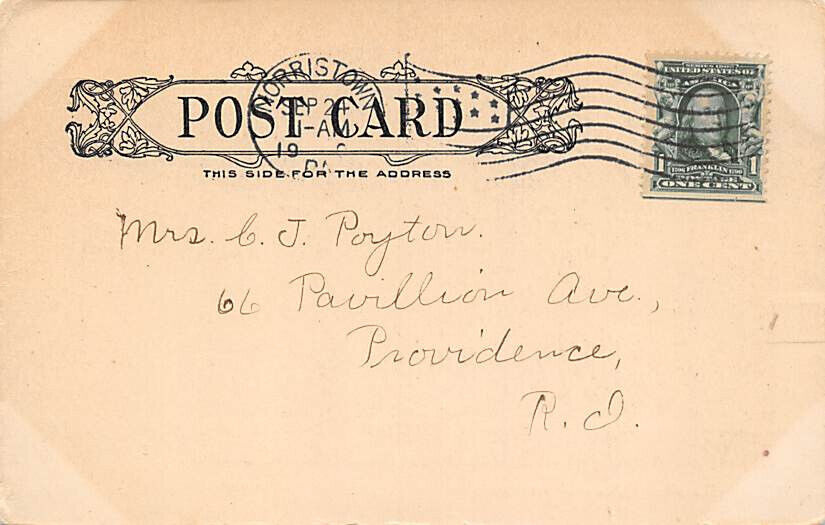 POST CARD
THIS SIDE FOR THE ADDRESS
NORRISTOWN
SEP 2
1-AM
19
PA
SERIES 1902
UNITED STATES OF
AMERICA
1706 FRANKLIN 1790
1 POSTAGE 1
ONE CENT
Mrs. C. J. Poyton.
66 Pavillion Ave.,
Providence,
R. I.